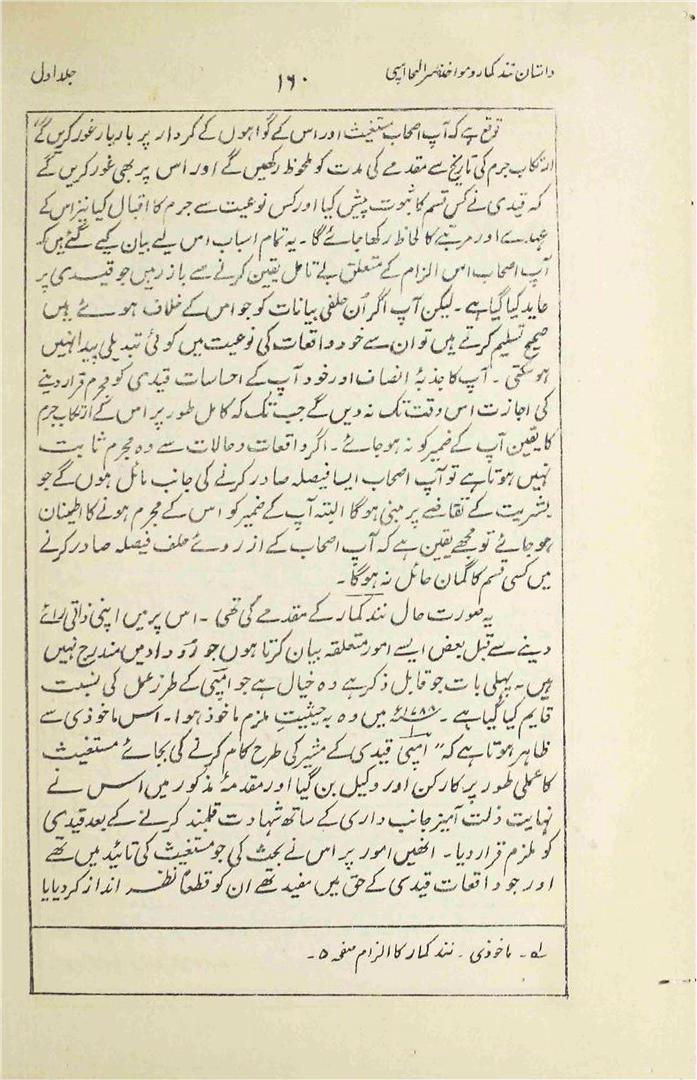 داستان نند کمار و مواخذہ سر الیجا امپی
۱۶۰
جلد اول
توقع ہے کہ آپ اصحاب مستغیث اور اس کے گواہوں کے کردار پر بار بار غور کریں گے
ارتکاب جرم کی تاریخ سے مقدمے کی مدت کو ملحوظ رکھیں گے اور اس پر بھی غور کریں گے
کہ قیدی نے کس قسم کا ثبوت پیش کیا اور کس نوعیت سے جرم کا اقبال کیا نیز اس کے
عہدے اور مرتبے کا لحاظ رکھا جائے گا۔ یہ تمام اسباب اس لیے بیان کیے گئے ہیں کہ
آپ اصحاب اس الزام کے متعلق بے تامل یقین کرنے سے باز رہیں جو قیدی پر
عاید کیا گیا ہے۔ لیکن آپ اگر اُن حلفی بیانات کو جو اس کے خلاف ہوئے ہیں
صحیح تسلیم کرتے ہیں تو ان سے خود واقعات کی نوعیت میں کوئی تبدیلی پیدا نہیں
ہو سکتی۔ آپ کا جذبۂ انصاف اور خود آپ کے احساسات قیدی کو مجرم قرار دینے
کی اجازت اس وقت تک نہ دیں گے جب تک کہ کامل طور پر اس کے ارتکاب جرم
کا یقین آپ کے ضمیر کو نہ ہو جائے۔ اگر واقعات و حالات سے وہ مجرم ثابت
نہیں ہوتا ہے تو آپ اصحاب ایسا فیصلہ صادر کرنے کی جانب مائل ہوں گے جو
بشریت کے تقاضے پر مبنی ہوگا البتہ آپ کے ضمیر کو اس کے مجرم ہونے کا اطمینان
ہو جائے تو مجھے یقین ہے کہ آپ اصحاب کے از روئے حلف فیصلہ صادر کرنے
میں کسی قسم کا گمان حائل نہ ہوگا۔
یہ صورت حال نند کمار کے مقدمے کی تھی۔ اس پر میں اپنی ذاتی رائے
دینے سے قبل بعض ایسے امور متعلقہ بیان کرتا ہوں جو رُوداد میں مندرج نہیں
ہیں۔ پہلی بات جو قابل ذکر ہے وہ خیال ہے جو امپی کے طرز عمل کی نسبت
قایم کیا گیا ہے۔ ۱۷۸۸ء میں وہ بہ حیثیتِ ملزم ماخوذ ہوا۔ اس ماخوذی سے
ظاہر ہوتا ہے کہ "امپی قیدی کے مشیر کی طرح کام کرنے کی بجائے مستغیث
کا عملی طور پر کارکن اور وکیل بن گیا اور مقدمۂ مذکور میں اس نے
نہایت ذلت آمیز جانب داری کے ساتھ شہادت قلمبند کرنے کے بعد قیدی
کو ملزم قرار دیا۔ انھیں امور پر اس نے بحث کی جو مستغیث کی تائید میں تھے
اور جو واقعات قیدی کے حق میں مفید تھے ان کو قطعاً نظر انداز کر دیا یا
لہ۔ ماخوذی۔ نند کمار کا الزام صفحہ ۵۔